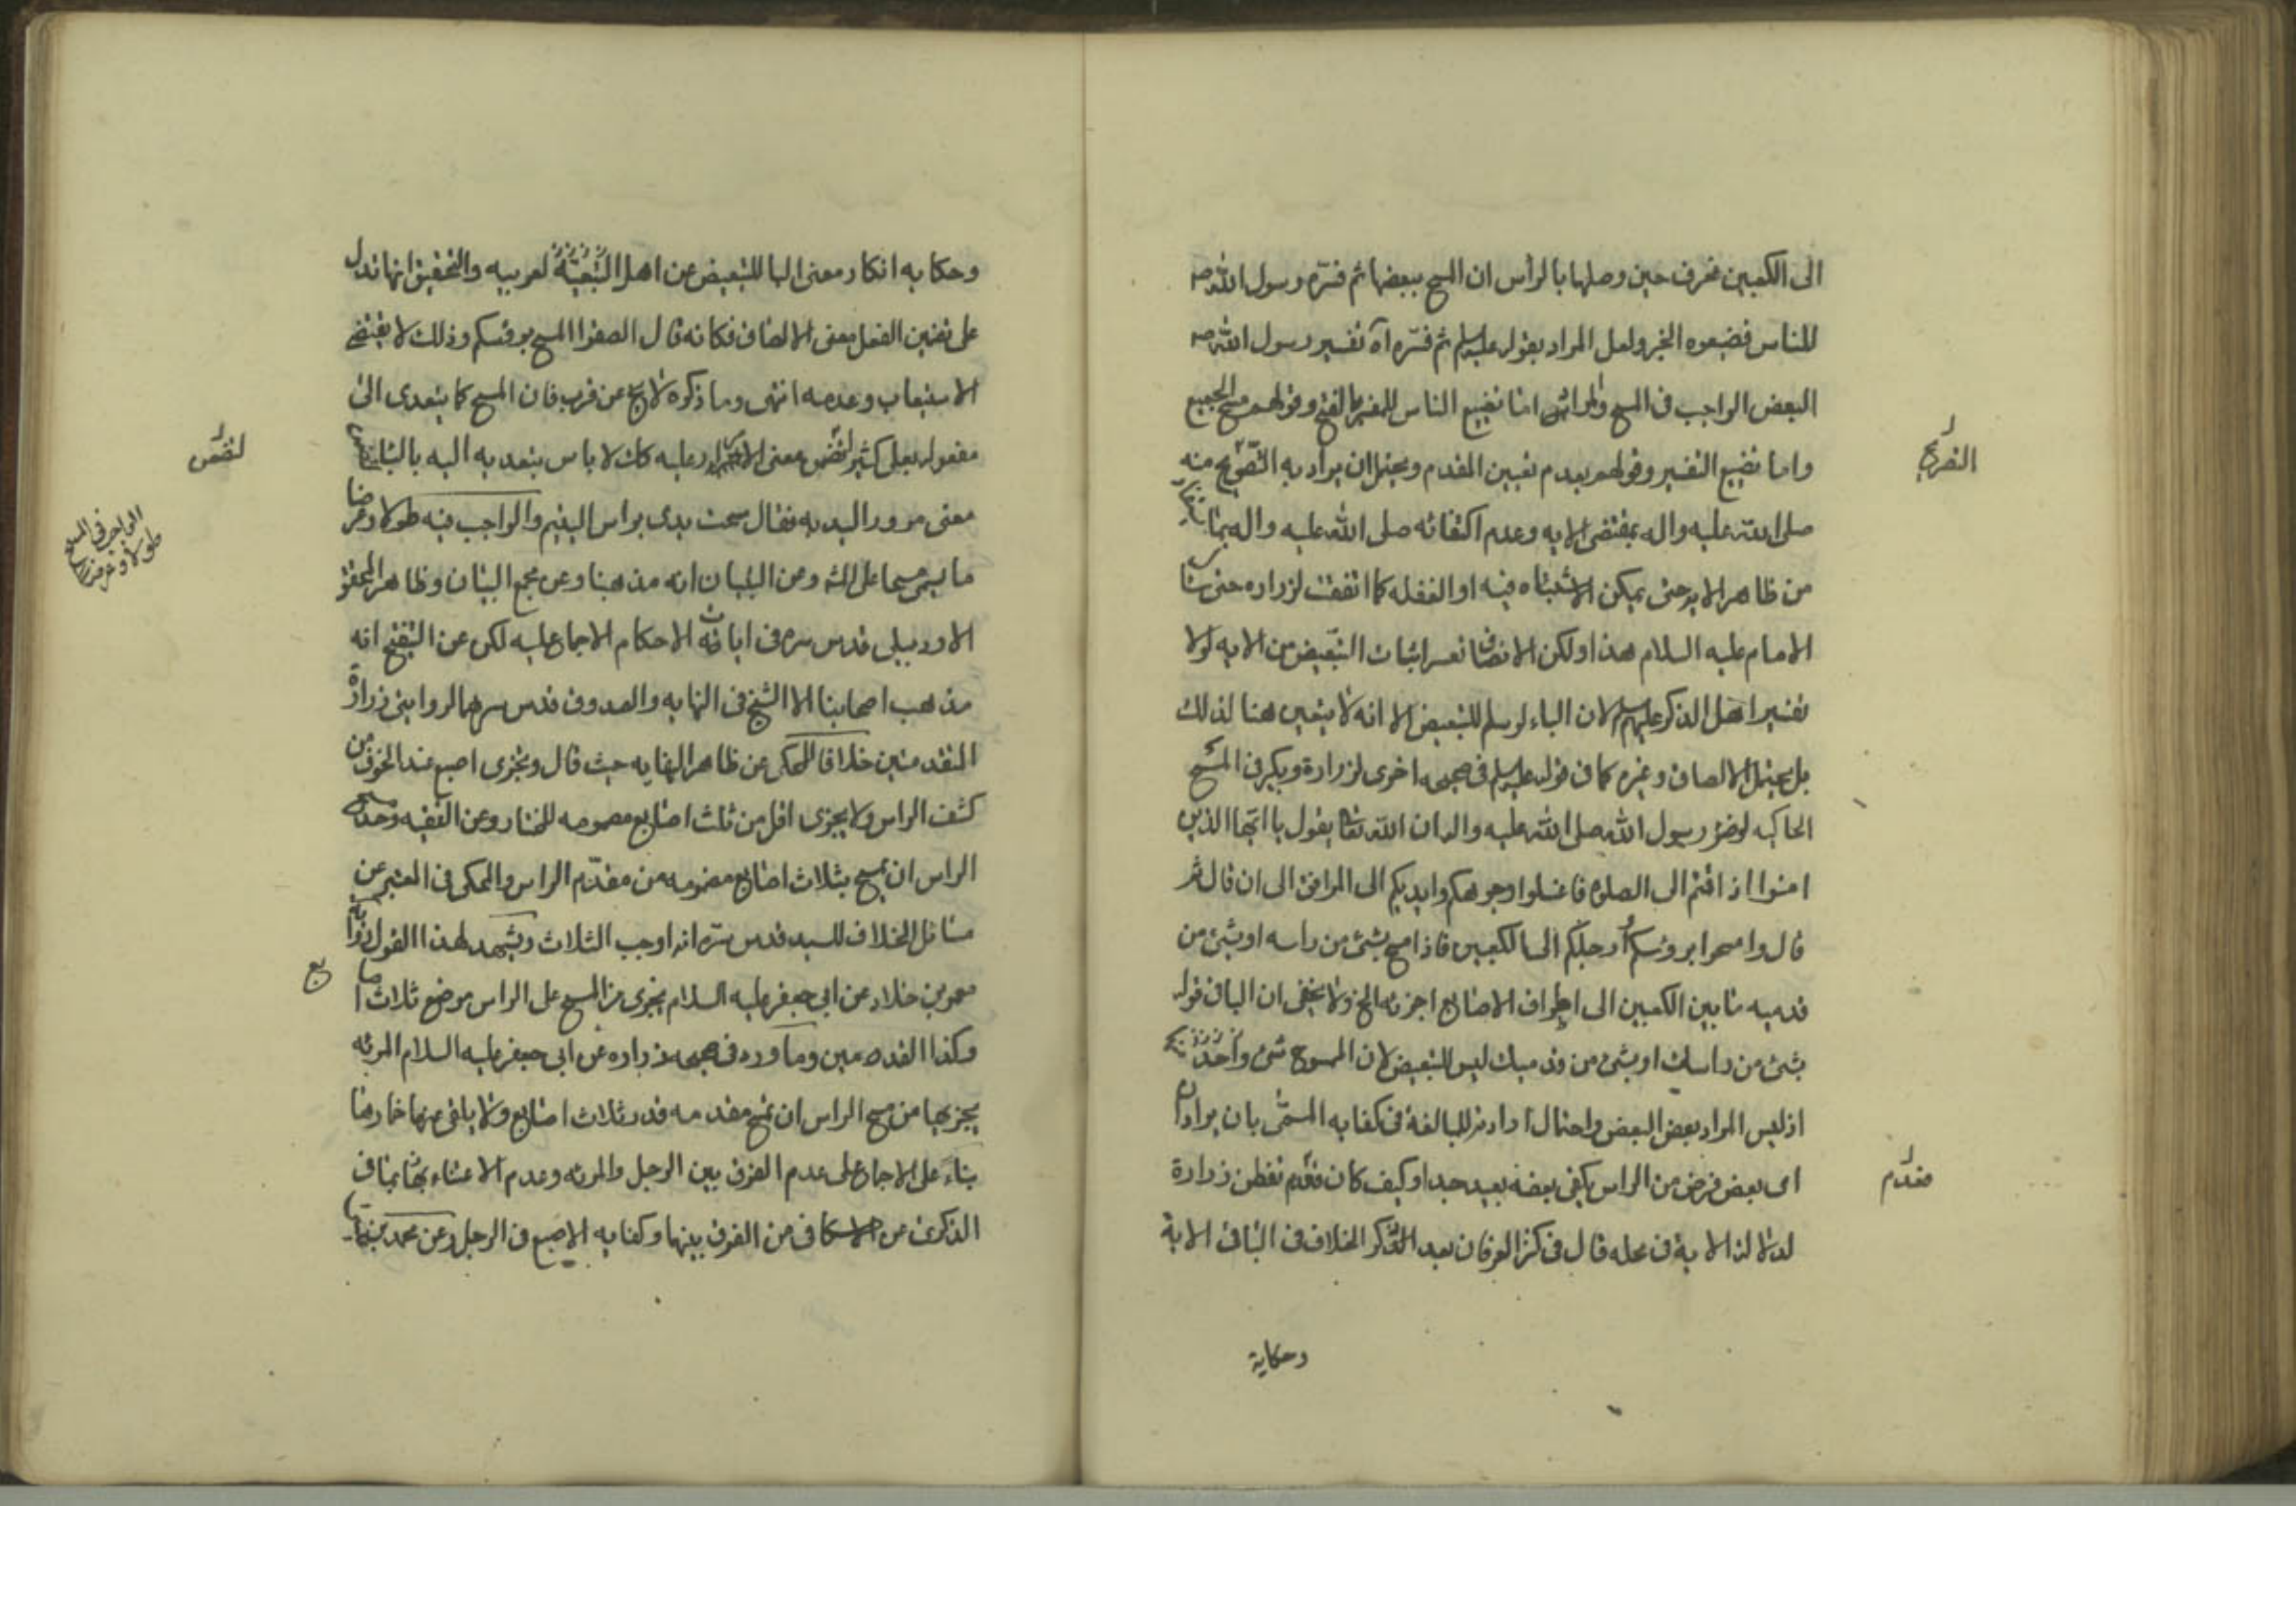 الى الكعبين فعرف حين وصلها بالرأس ان المسح ببعضها ثم فسّره رسول الله ص
للناس فضيعوه الخبر ولعل المراد بقوله عليه السلم ثم فسّره آه تفسير رسول الله ص
البعض الواجب في المسح والمراد اما تضييع الناس وقولهم مسح الجميع
واما تضييع التفسير وقولهم بعدم تعيين المقدم ويحتمل ان يراد به التصريح منه
صلى الله عليه واله بمقتضى الايه وعدم اكتفائه صلى الله عليه واله بما
من ظاهر الايه حتى يمكن الاشتباه فيه او الغفله كما اتفقت لزراره حتى سئل
الامام عليه السلام هذا ولكن الانصاف تعسر اثبات التبعيض من الايه لولا
تفسير اهل الذكر عليهم السلم لان الباء لو سلم للتبعيض الا انه لا يتعين هنا لذلك
بل يحتمل الالصاق وغيره كما في قوله عليه السلم في صحيحه اخرى لزرارة وبكير في المسح
الحاكيه لوضوء رسول الله صلى الله عليه واله ان الله تعالى يقول يا ايها الذين
امنوا اذا قمتم الى الصلوة فاغسلوا وجوهكم وايديكم الى المرافق الى ان قال ثم
قال وامسحوا برؤسكم وارجلكم الى الكعبين فاذا مسح بشئ من راسه او بشئ من
قدميه ما بين الكعبين الى اطراف الاصابع اجزئه الخ ولا يخفى ان الباء في قوله
بشئ من راسك او بشئ من قدميك ليس للتبعيض لان الممسوح شئ واحد
اذ ليس المراد بعض البعض واحتمال ارادته للمبالغة في كفايه المسمّى بان يراد ان
اى بعض فرض من الراس يكفى بعضه بعيد جدا وكيف كان فقد تقدّم تفطن زرارة
لدلالة الاية في محله قال في كنز العرفان بعد الذكر الخلاف في الباء في الاية
وحكاية
التصريح
مقدّم
وحكايه انكار معنى البا للتبعيض عن اهل العربيه والتحقيق انها تدل
على تضمين الفعل معنى الالصاق فكانه قال الصقوا المسح برؤسكم وذلك لا يقتضى
الاستيعاب وعدمه انتهى وما ذكره لا يخ عن قرب فان المسح كما يتعدى الى
مفعوله بعلى كثيرا لتضمن معنى الامرار عليه كك لا باس بتعديه اليه بالبا
معنى مرور اليد به فقال مسحت يدى براس اليتيم والواجب فيه طولا وعرضا
ما يسمى مسحا على وعن التبيان انه مذهبنا وعن مجمع البيان وظاهر المحقق
الاردبيلى قدس سره في ايات الاحكام الاجماع عليه لكن عن التنقيح انه
مذهب اصحابنا الا الشيخ في النهايه والصدوق قدس سرهما لروايتى زرارة
المتقدمتين خلافا للمحكى عن ظاهر النهايه حيث قال ويجزى اصبع عند الخوف من
كشف الراس ولا يجزى اقل من ثلث اصابع مضمومه للمختار وعن الفقيه وحد مسح
الراس ان يمسح بثلاث اصابع مضمومه من مقدّم الراس والمحكى في المعتبر عن
مسائل الخلاف للسيد قدس سره انه اوجب الثلاث ويشهد لهذا القول رواية
معمر بن خلاد عن ابى جعفر عليه السلام يجزى من المسح على الراس موضع ثلاث اصابع
وكذا القدمين وما ورد في صحيحه زراره عن ابى جعفر عليه السلام المرئه
يجزيها من مسح الراس ان تمسح مقدمه قدر ثلاث اصابع ولا يلقى عنها خمارها
بناء على الاجماع على عدم الفرق بين الرجل والمرئه وعدم الاعتناء بما في
الذكرى عن الاسكافى من الفرق بينهما وكفايه الاصبع في الرجل وعن محمد بن
لتضمن
الواجب في المسح
طولا وعرضا